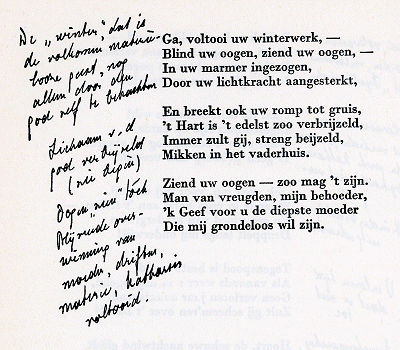 De „winter," dat is
de volkomen materie-
looze geest, nog
alleen door den
god zelf te betrachten
Lichaam v. d
god verbrijzeld
(zie begin)
Oogen „zien" toch
Blijvende over-
winning van
moeder, driften,
materie, katharsis
voltooid.
Ga, voltooi uw winterwerk, —
Blind uw oogen, ziend uw oogen, —
In uw marmer ingezogen,
Door uw lichtkracht aangesterkt,
En breekt ook uw romp tot gruis,
't Hart is 't edelst zoo verbrijzeld,
Immer zult gij, streng beijzeld,
Mikken in het vaderhuis.
Ziend uw oogen — zoo mag 't zijn.
Man van vreugden, mijn behoeder,
'k Geef voor u de diepste moeder
Die mij grondeloos wil zijn.